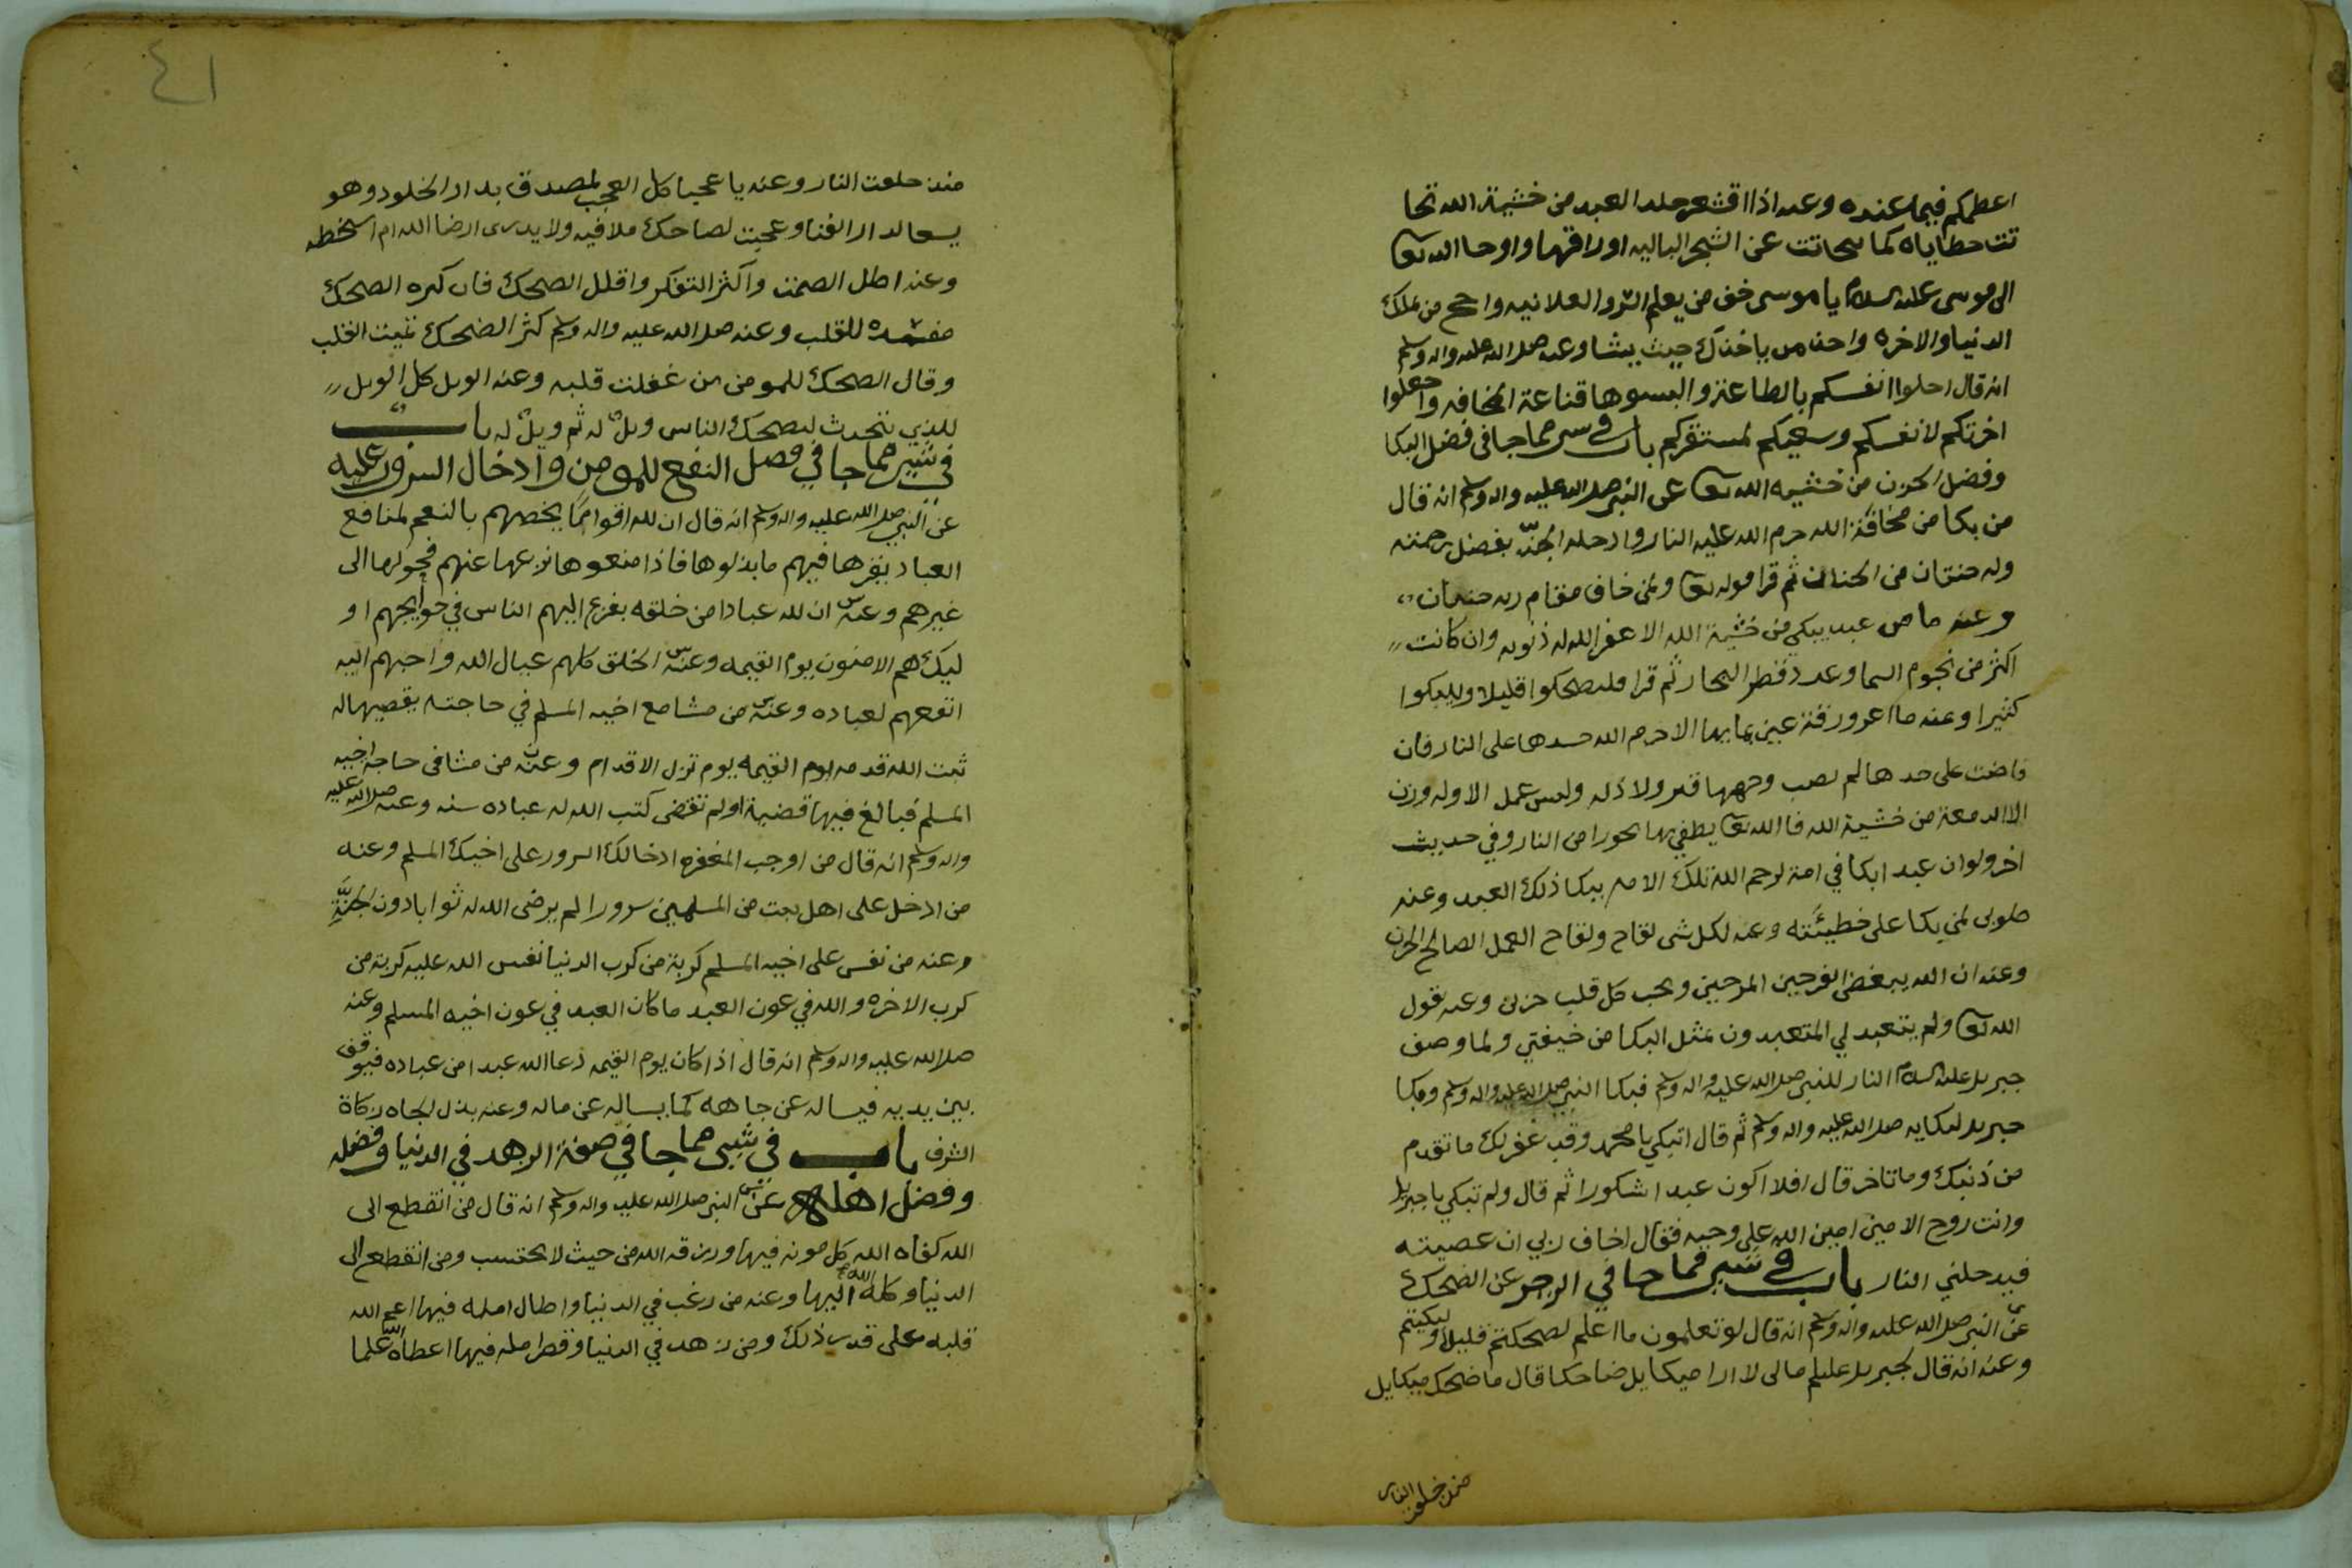 اعظمكم فيما عنده وعنه اذا اقشعر جلد العبد من خشية الله تحا
تت خطاياه كما يتحاتت عن الشجر الباليه اوراقها واوحا الله تعا
الى موسى عليه السلام يا موسى خف من يعلم السر والعلانيه من ملك
الدنيا والاخره واحذر من ياخذك حيث يشا وعنه صلى الله عليه واله وسلم
انه قال احلوا انفسكم بالطاعة والبسوها قناعة المخافه واجعلوا
اخرتكم لانفسكم وسعيكم لمستقركم باب في شي مما جا في فضل البكا
وفضل الحزن من خشيه الله تعا عن النبي صلى الله عليه واله وسلم انه قال
من بكا من مخافة الله حرم الله عليه النار وادخله الجنة بفضل رحمته
وله جنتان من الجنان ثم قرا قوله تعا ولمن خاف مقام ربه جنتان
وعنه ما من عبد يبكي من خشية الله الا غفر الله له ذنوبه وان كانت
اكثر من نجوم السما وعدد قطر البحار ثم قرا فليضحكوا قليلا وليبكوا
كثيرا وعنه ما اغرورقت عين بمايها الا حرم الله جسدها على النار فان
فاضت على خدها لم يصب وجهها قتر ولا ذله وليس عمل الا وله وزن
الا الدمعة من خشية الله فالله تعا يطفي بها بحورا من النار وفي حديث
اخر ولو ان عبدا بكا في امة لرحم الله تلك الامه ببكا ذلك العبد وعنه
طوبى لمن بكا على خطيئته وعنه لكل شي لقاح ولقاح العمل الصالح الحزن
وعنه ان الله يبغض الفرحين المرحين ويحب كل قلب حزين وعنه يقول
الله تعا ولم يتعبد لي المتعبدون بمثل البكا من خيفتي ولما وصف
جبريل عليه السلام النار للنبي صلى الله عليه واله وسلم فبكا النبي صلى الله عليه واله وسلم وبكا
جبريل لبكايه صلى الله عليه واله وسلم ثم قال اتبكي يا محمد وقد غفر لك ما تقدم
من ذنبك وما تاخر قال افلا اكون عبدا شكورا ثم قال ولم تبكي يا جبريل
وانت روح الامين امين الله على وحيه فقال اخاف ربي ان عصيته
فيدخلني النار باب في شي مما جا في الزجر عن الضحك
عن النبي صلى الله عليه واله وسلم انه قال لو تعلمون ما اعلم لضحكتم قليلا ولبكيتم
وعنه انه قال لجبريل عليلم مالي لا ارا ميكايل ضاحكا قال ما ضحك ميكايل
منذ خلقت النار
٤١
منذ خلقت النار وعنه يا عجبا كل العجب لمصدق بدار الخلود وهو
يسعا لدار الفنا وعجبت لضاحك ملا فيه ولا يدرى ارضا الله ام اسخطه
وعنه اطل الصمت واكثر التفكر واقلل الضحك فان كثره الضحك
مفسده للقلب وعنه صلى الله عليه واله وسلم كثر الضحك تميت القلب
وقال الضحك للمومن من غفلت قلبه وعنه الويل كل الويل
للذي يتحدث ليضحك الناس ويل له ثم ويل له باب
في شي مما جا في فضل النفع للمومن وادخال السرور عليه
عن النبي صلى الله عليه واله وسلم انه قال ان لله اقواما يخصهم بالنعم لمنافع
العباد يقرها فيهم ما بذلوها فاذا منعوها نزعها عنهم فحولها الى
غيرهم وعنه ان لله عبادا من خلقه يفزع اليهم الناس في حوايجهم او
ليك هم الامنون يوم القيمه وعنه الخلق كلهم عيال الله واحبهم اليه
انفعهم لعباده وعنه من مشا مع اخيه المسلم في حاجته يقضيها له
ثبت الله قدمه يوم القيمه يوم تزل الاقدام وعنه من مشا في حاجة اخيه
المسلم فبالغ فيها قضيت او لم تقضى كتب الله له عباده سنه وعنه صلى الله عليه
واله وسلم انه قال من اوجب المغفره ادخالك السرور على اخيك المسلم وعنه
من ادخل على اهل بيت من المسلمين سرورا لم يرضى الله له ثوابا دون الجنة
وعنه من نفس على اخيه المسلم كربة من كرب الدنيا نفس الله عليه كربة من
كرب الاخره والله في عون العبد ما كان العبد في عون اخيه المسلم وعنه
صلى الله عليه واله وسلم انه قال اذا كان يوم القيمه دعا الله عبدا من عباده فيوقف
بين يديه فيساله عن جاهه كما يساله عن ماله وعنه بذل الجاه زكاة
الشرف باب في شي مما جا في صفة الزهد في الدنيا وفضله
وفضل اهله عن النبي صلى الله عليه واله وسلم انه قال من انقطع الى
الله كفاه الله كل مونه فيها ورزقه الله من حيث لا يحتسب ومن انقطع الى
الدنيا وكله الله اليها وعنه من رغب في الدنيا واطال امله فيها اعمى الله
قلبه على قدر ذلك ومن زهد في الدنيا وقصر امله فيها اعطاه الله علما